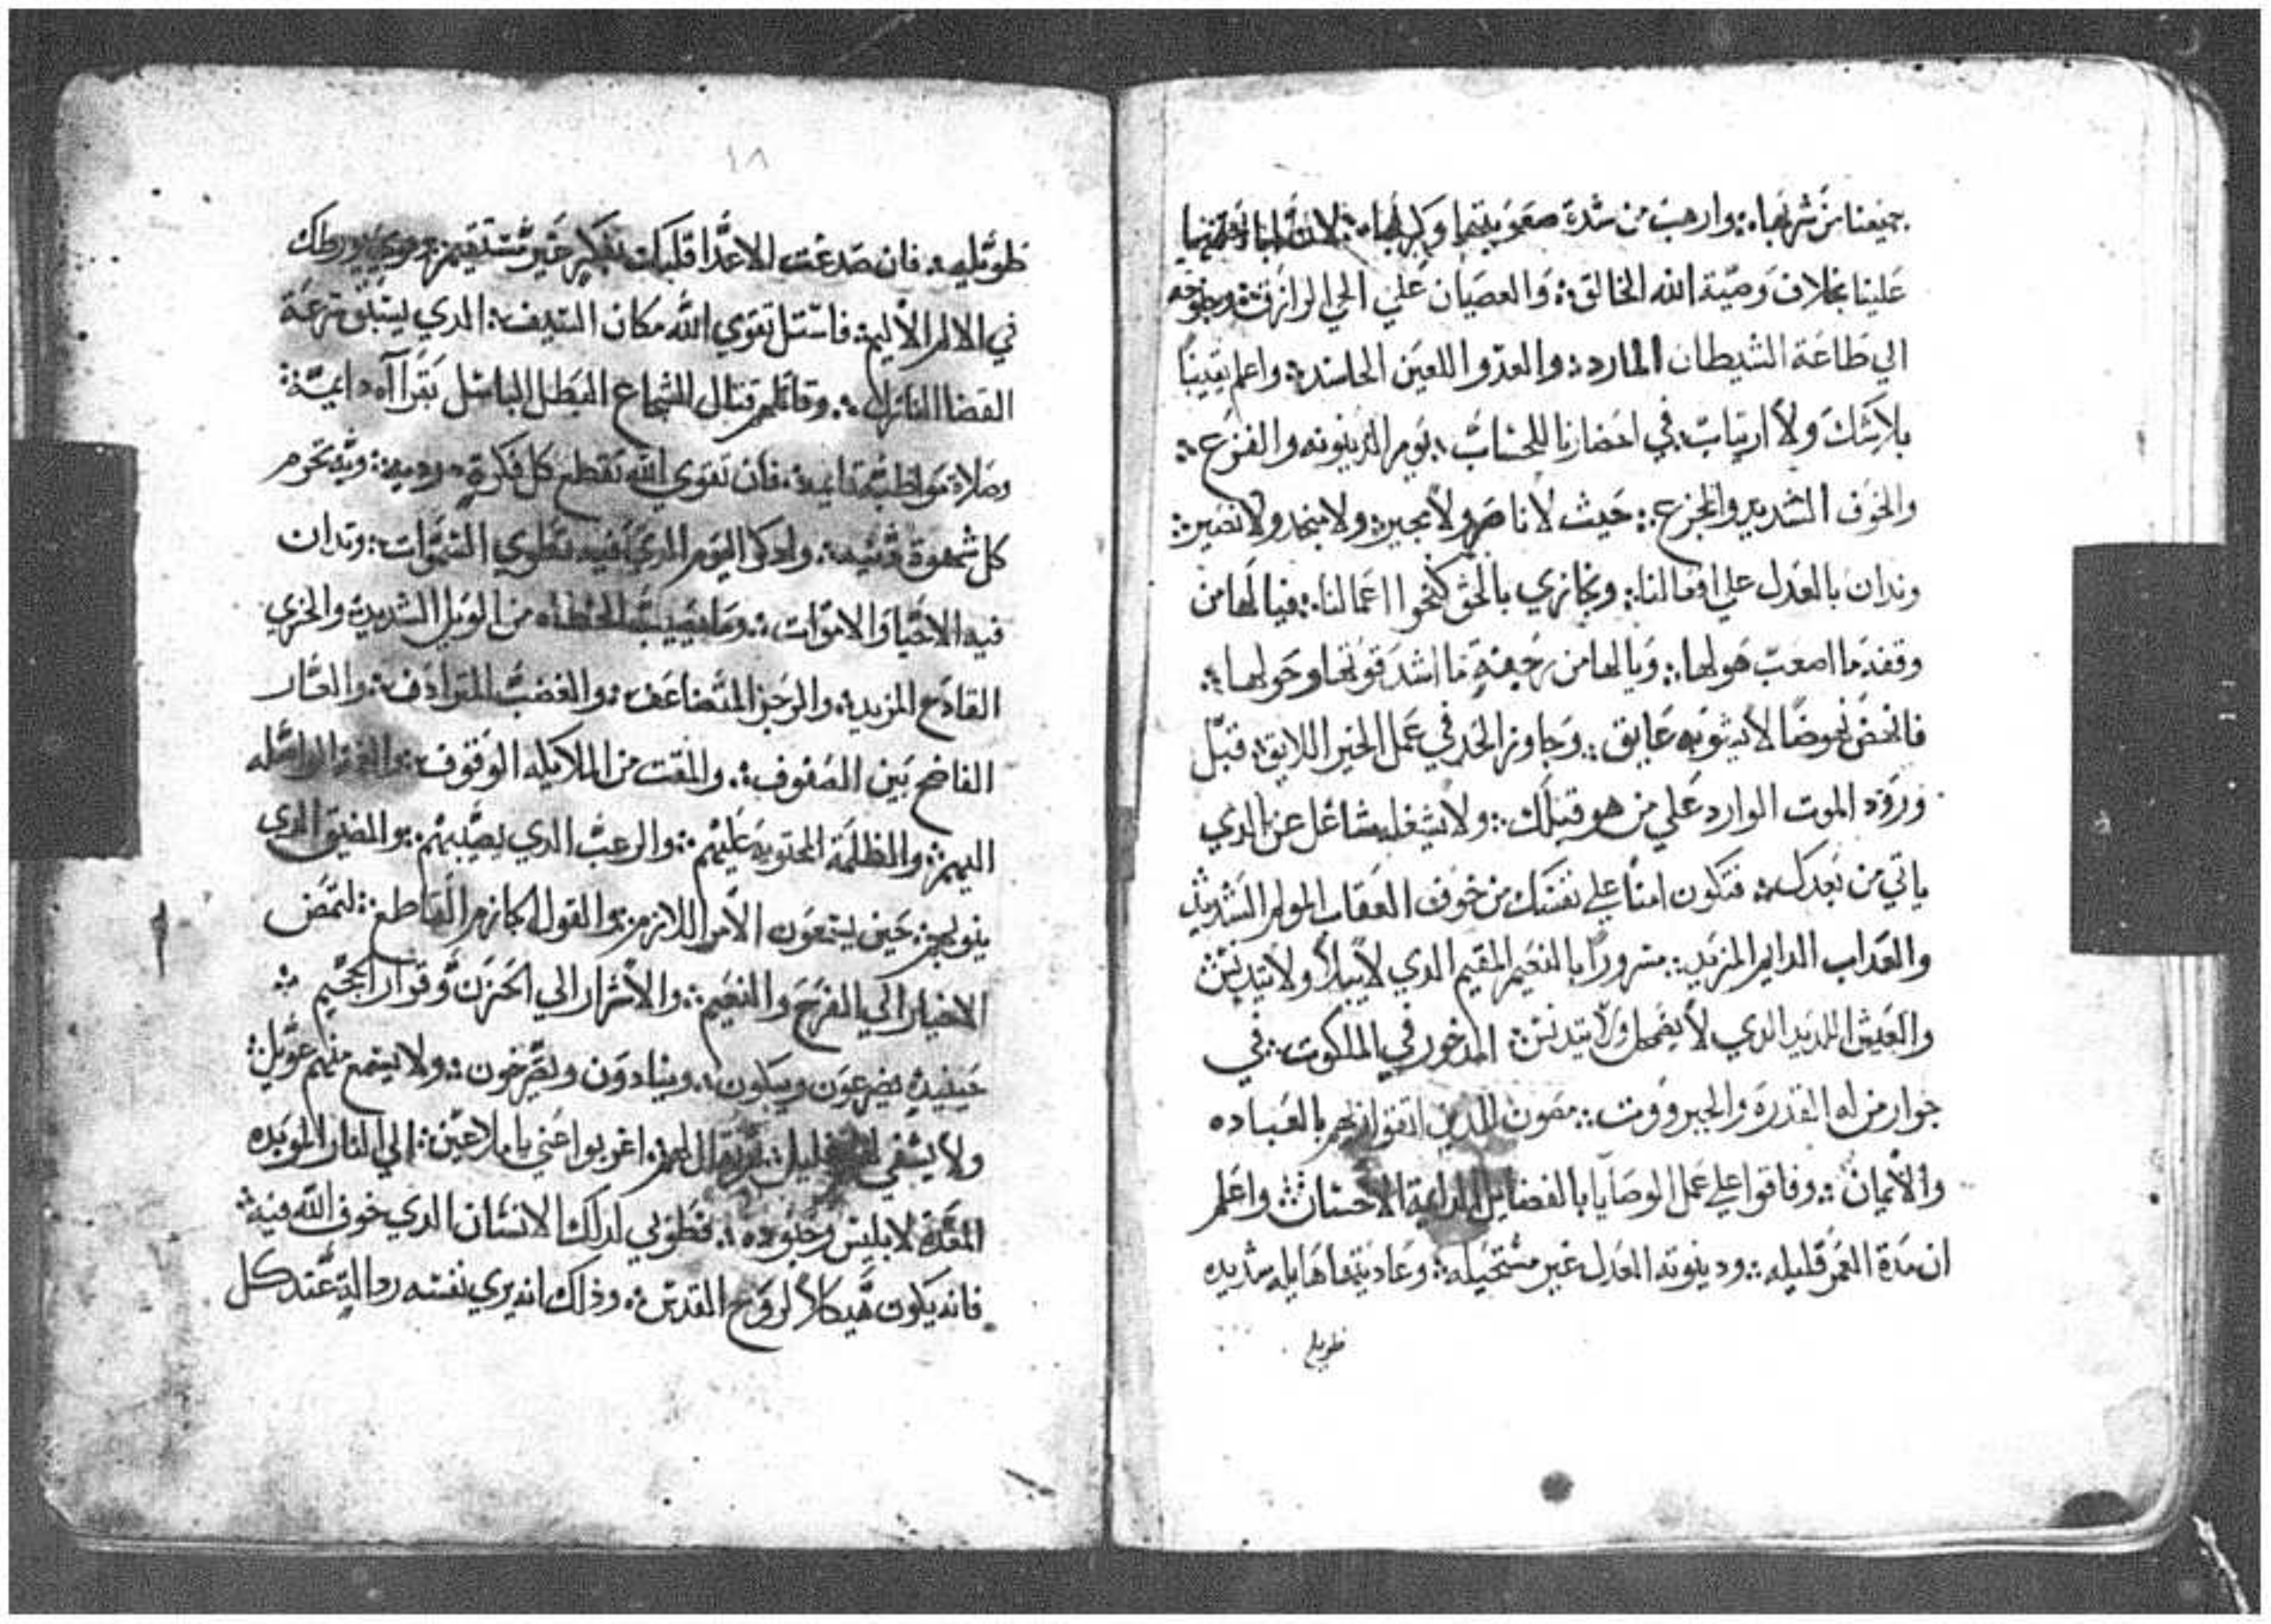 جميعنا من شربها ۞ وارهب من شدة صعوبتها وكربها ۞ لان
علينا بخلاف وصية الله الخالق ۞ والعصيان علي الحي الرازق ۞
الي طاعة الشيطان المارد ۞ والعدو اللعين الحاسد ۞ واعلم يقينا
بلا شك ولا ارتياب ۞ في احضارنا للحساب ۞ يوم الدينونه والفزع ۞
والخوف الشديد والجزع ۞ حيث لا ناصر ولا مجير ۞ ولا منجد ولا نصير ۞
وندان بالعدل علي افعالنا ۞ ونجازي بالحق كنحو اعمالنا ۞ فيالها من
وقفة ما اصعب هولها ۞ ويالها من رجفة ما اشد قوتها وحولها ۞
فانهض نهوضا لا يشوبه عايق ۞ وجاوز الحد في عمل الخير اللايق ۞ قبل
ورود الموت الوارد علي من هو قبلك ۞ ولا يشغلك شاغل عن الدي
ياتي من بعدك ۞ فتكون امنا علي نفسك من خوف العقاب المولم الشديد
والعداب الدايم المزيد ۞ مسرورا بالنعيم المقيم الدي لا يبلا ولا يتدنس
والعيش اللديد الدي لا يضمحل ولا يتدنس ۞ المدخور في الملكوت ۞ في
جوار من له القدرة والجبرووت ۞ مصون للدين اتقوا ربهم بالعباده
والايمان ۞ وفاقوا علي عمل الوصايا بالفضايل الاحسان ۞ واعلم
ان مدة العمر قليله ۞ ودينونة العدل غير مستحيله ۞ وعاديتها هايله شديده
طويله
١٨
طويله ۞ فان صدعت الاعدا قلبك بفكر غير مستقيم ۞ ورطك
في الالم الاليم ۞ فاستل تقوي الله مكان السيف ۞ الدي يسبق سرعة
القضا النازل ۞ وقاتلهم قتال الشجاع البطل الباسل بقراآه دايمة ۞
وصلاة مواظبة دايمة ۞ فان تقوي الله تقطع كل فكرة رديه ۞ وتخرم
كل شهوة دنيه ۞ وادكر اليوم الدي فيه تطوي السموات ۞ وتدان
فيه الاحيا والاموات ۞ وما يصيب الخطاه من الويل الشديد ۞ والخزي
الفادح المزيد ۞ والوجز المتضاعف ۞ والغضب المترادف ۞ والعار
الفاضح بين الصفوف ۞ والمقت من الملايكه الوقوف ۞
اليهم ۞ والظلمة المحتويه عليهم ۞ والرعب الدي يصيبهم ۞ والضيق الدي
ينوبهم ۞ حين يسمعون الامر اللازم ۞ والقول الجازم القاطع ۞ لتمض
الاخيار الي الفرح والنعيم ۞ والاشرار الي الحزن وقرار الجحيم ۞
حينيد يضرعون ويبكون ۞ وينادون ويصرخون ۞ ولا يسمع منهم عويل ۞
ولا يشفي لهم غليل ۞ ثم يقال لهم ۞ اغربوا عني يا ملاعين ۞ الي النار الموبده
المعدة لابليس وجنوده ۞ فطوبي لدلك الانسان الدي خوف الله فيه ۞
فانه يكون هيكلا لروح القدس ۞ وذلك انه يري نفسه عند كل